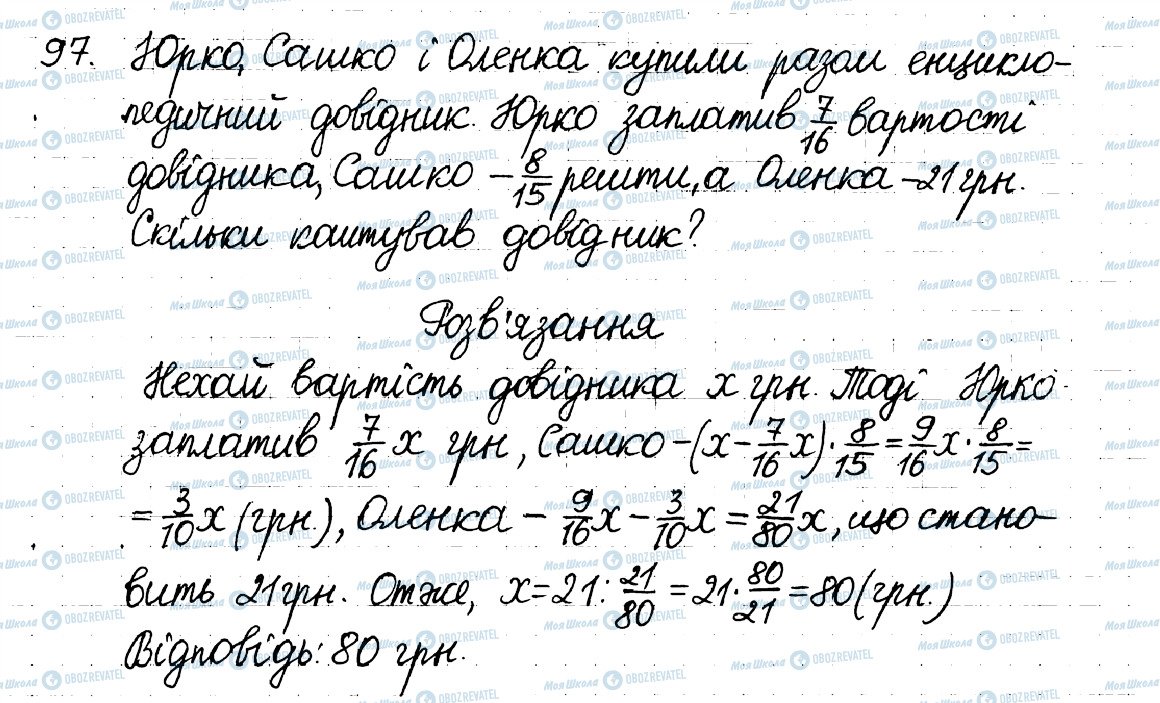 97. Юрко, Сашко і Оленка купили разом енцикло-
педичний довідник. Юрко заплатив 7/16 вартості
довідника, Сашко – 8/15 решти, а Оленка – 21 грн.
Скільки коштував довідник?
Розв'язання
Нехай вартість довідника x грн. Тоді Юрко
заплатив 7/16 x грн, Сашко – (x – 7/16 x) · 8/15 = 9/16 x · 8/15 =
= 3/10 x (грн.), Оленка – 9/16 x – 3/10 x = 21/80 x, що стано-
вить 21 грн. Отже, x = 21 : 21/80 = 21 · 80/21 = 80 (грн.)
Відповідь: 80 грн.